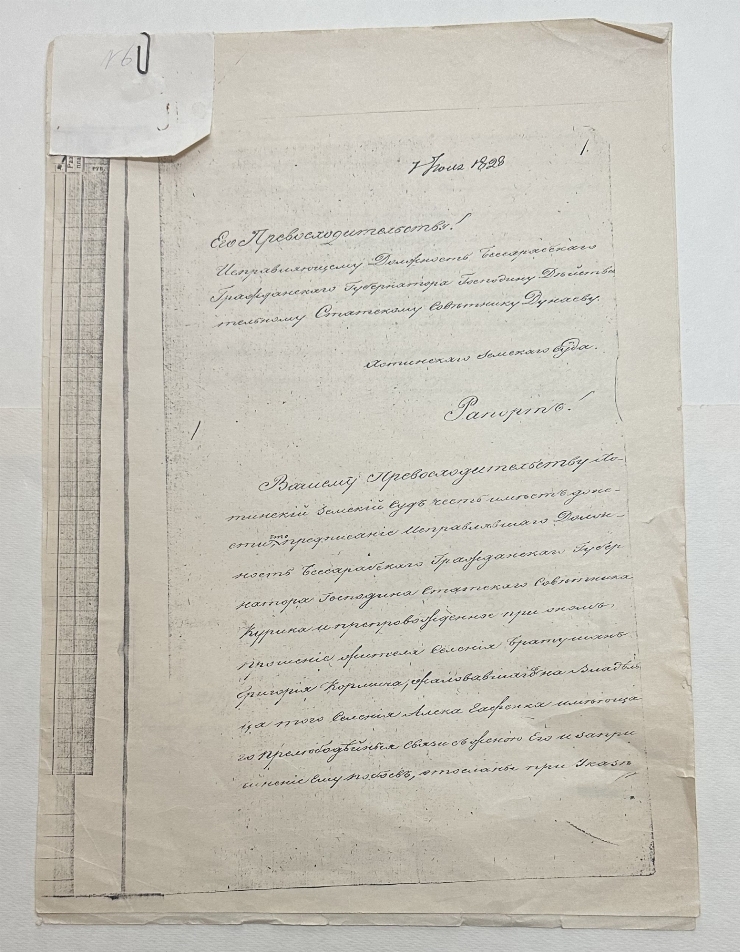 N6
1.
7 Июля 1828
Его Превосходительства!
Исправляющему Должность Бессарабскаго
Гражданскаго Губернатора Господину Действи
тельному Статскому Советнику Дунаеву.
Хотинскаго Земскаго Суда.
Рапортъ!
Вашему Превосходительству Хо-
тинскій Земскій Судъ честь имѣетъ доне-
сти что предписаніе Исправлявшаго Долж-
ность Бессарабскаго Гражданскаго Губер
натора Господина Статскаго Советника
Курика и препровожденное при ономъ
прошеніе жителя Селенія
Григорія Кормича, жаловавшагося на Владѣль
ца того Селенія Алека имѣюща
го прелюбодѣйныя Связи съ женою Его и за при
иненіе Ему побоевъ, отосланы при Указѣ